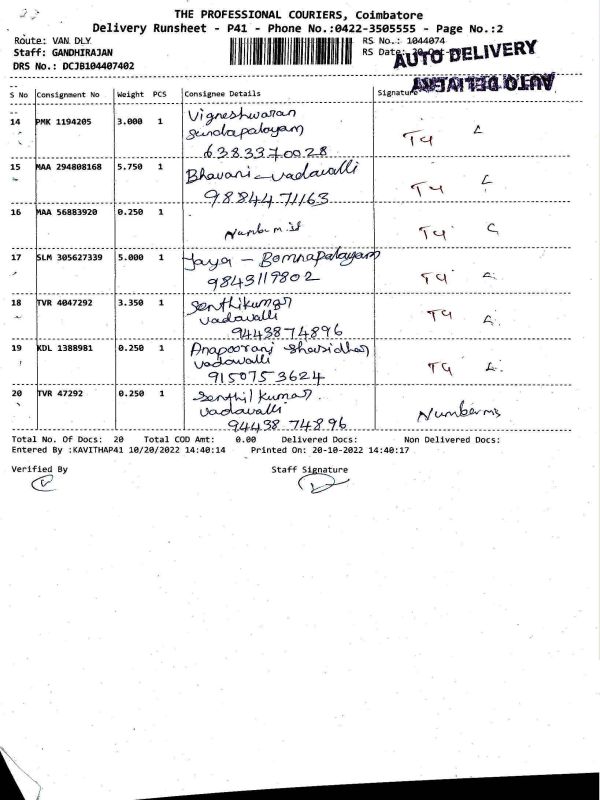 THE PROFESSIONAL COURIERS, Coimbatore
Delivery Runsheet - P41 - Phone No.:0422-3505555 - Page No.:2
Route: VAN DLY
RS No.: 1044074
Staff: GANDHIRAJAN
RS Date:
AUTO DELIVERY
DRS No.: DCJB104407402
AUTO DELIVERY
S No Consignment No Weight PCS Consignee Details Signature
14 PMK 1194205 3.000 1 Vigneshwaran
Sundapalayam
6383370028
T4
15 MAA 294808168 5.750 1 Bhavani - vadavalli
98844 71163
T4
16 MAA 56883920 0.250 1
T4
17 SLM 305627339 5.000 1 Jaya - Bomnapalayam
9843119802
T4
18 TVR 4047292 3.350 1 Senthikumar
vadavalli
9443874896
T4
19 KDL 1388981 0.250 1
vadavalli
9150753624
T4
20 TVR 47292 0.250 1 Senthil kumar
vadavalli
94438 74896
Number ms
Total No. Of Docs: 20 Total COD Amt: 0.00 Delivered Docs: Non Delivered Docs:
Entered By :KAVITHAP41 10/20/2022 14:40:14 Printed On: 20-10-2022 14:40:17
Verified By Staff Signature